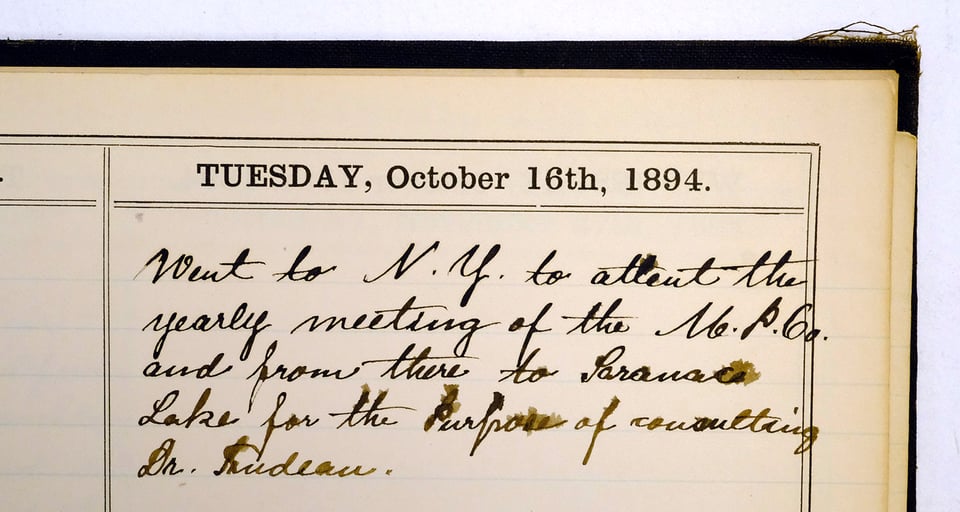 TUESDAY, October 16th, 1894.
Went to N. Y. to attent the
yearly meeting of the M. P. Co.
and from there to Saranac
Lake for the Purpose of consulting
Dr. Trudeau.